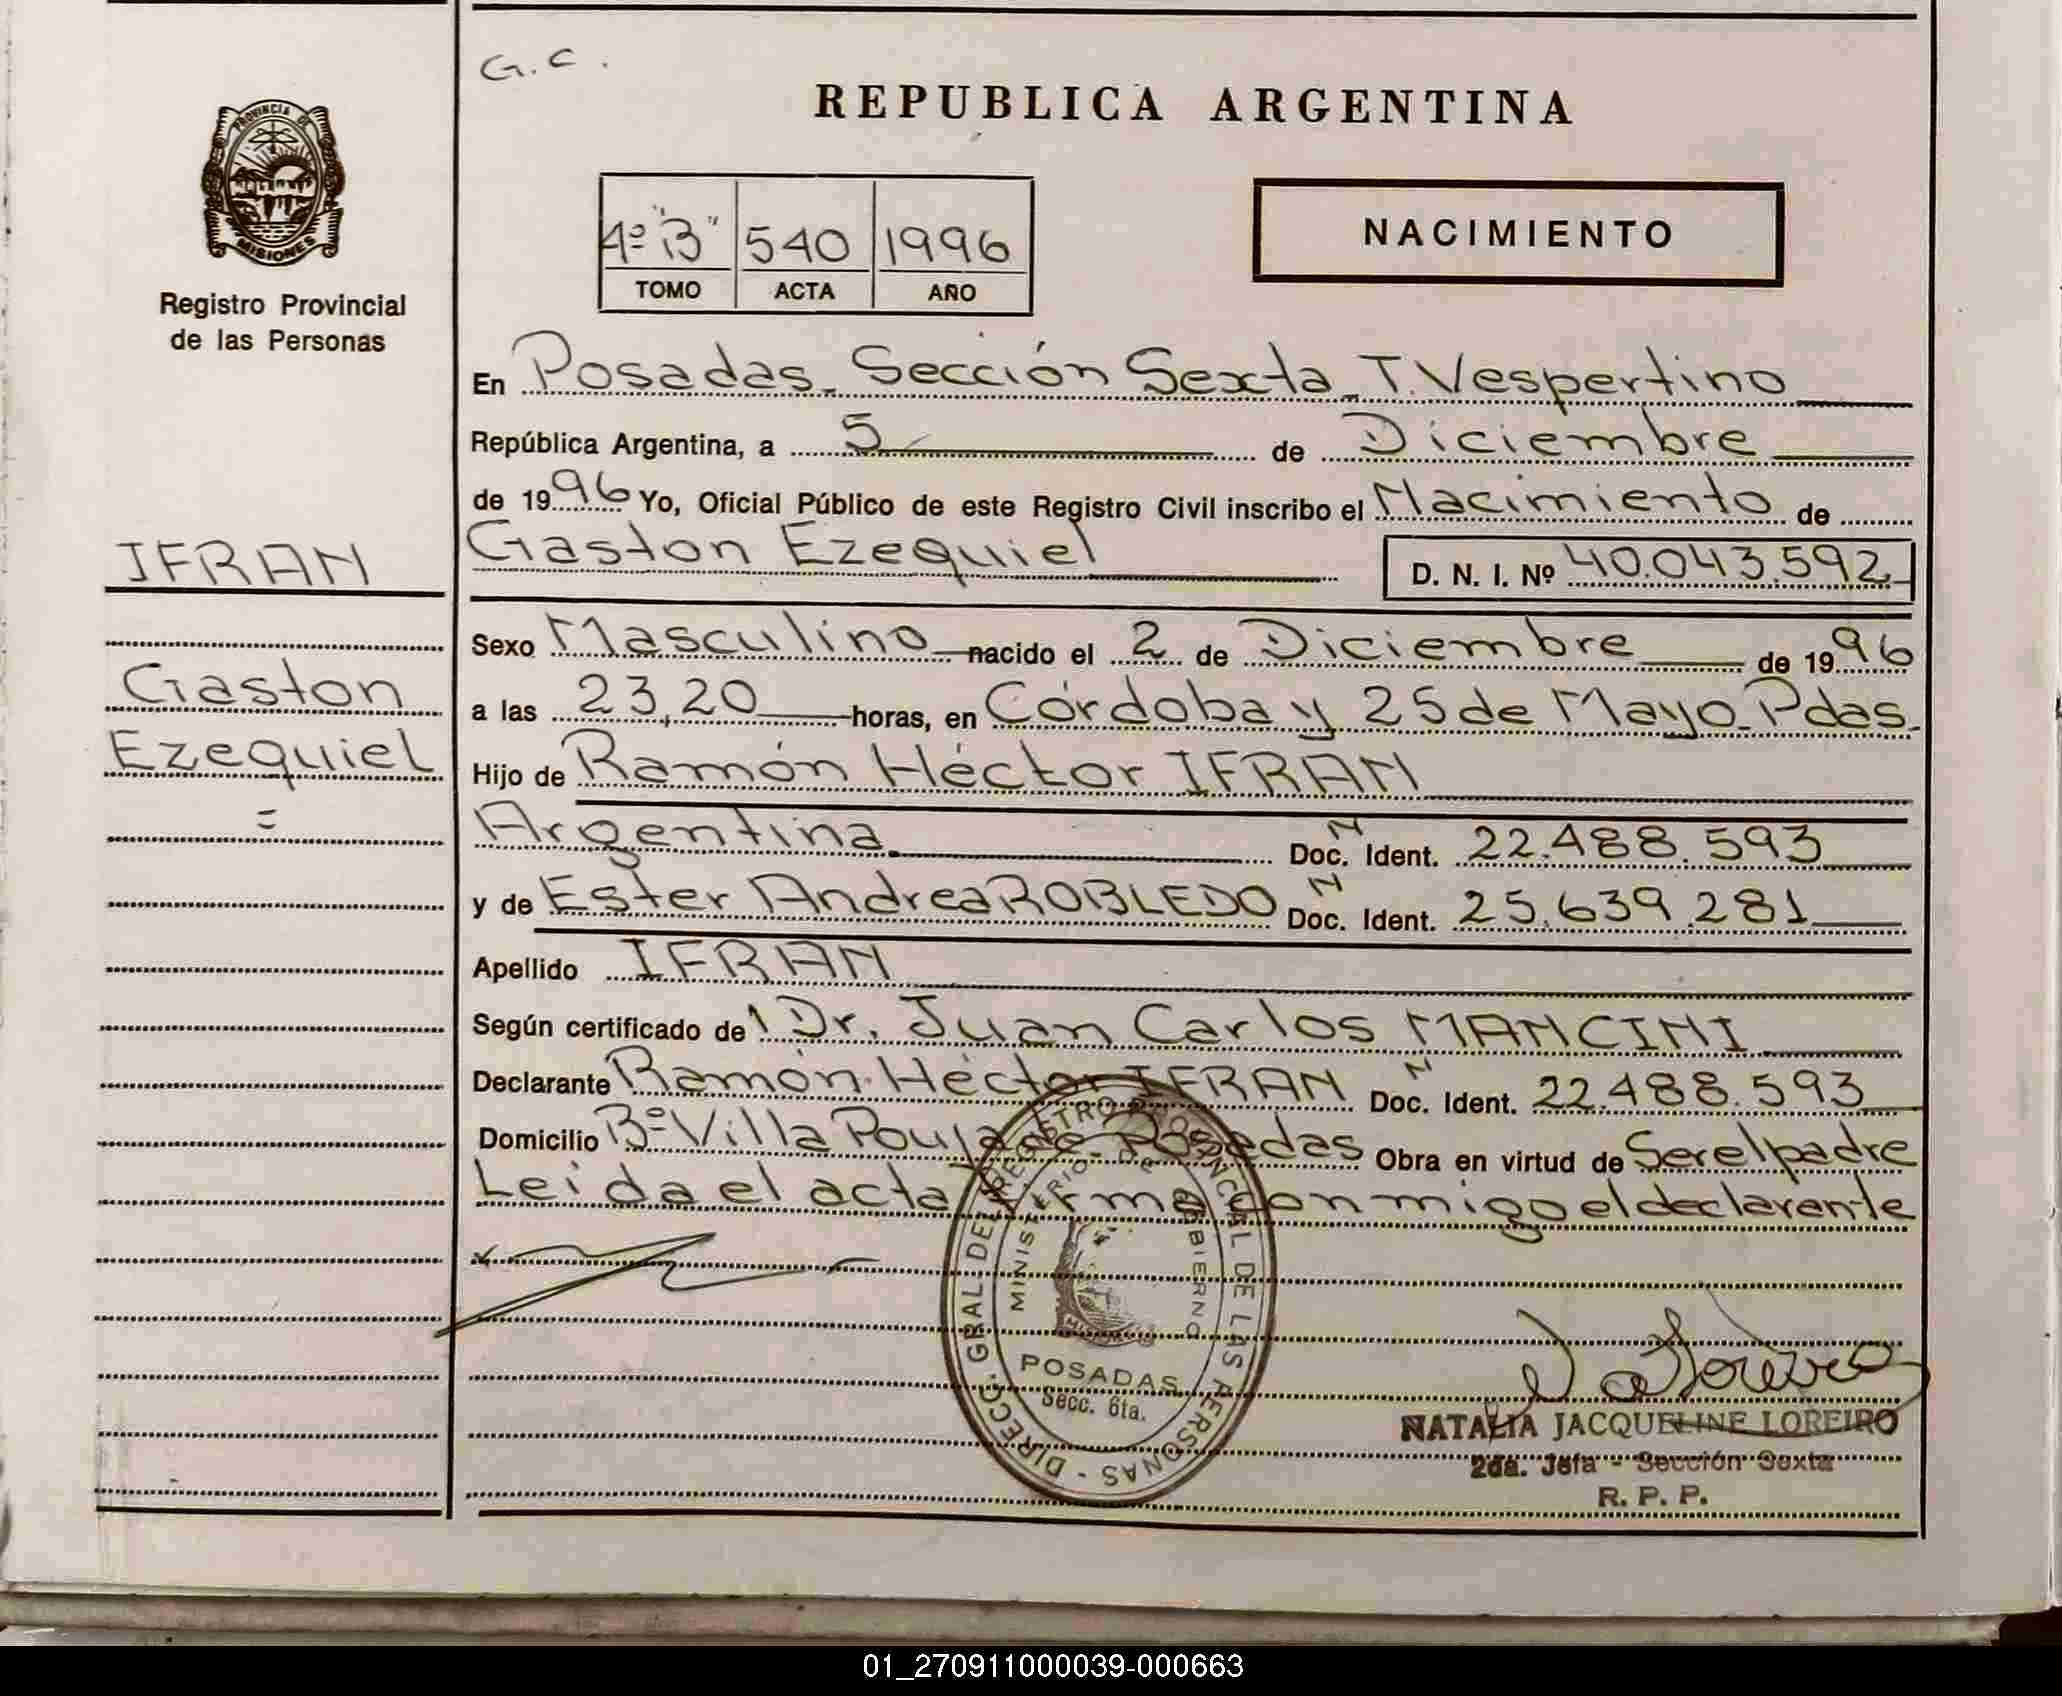 G.C.
REPUBLICA ARGENTINA
PROVINCIA DE
MISIONES
Registro Provincial
de las Personas
4º "B" 540 1996
TOMO ACTA AÑO
NACIMIENTO
En Posadas. Sección Sexta. T. Vespertino
República Argentina, a 5 de Diciembre
de 1996 Yo, Oficial Público de este Registro Civil inscribo el Nacimiento de
Gaston Ezequiel D. N. I. Nº 40.043.592
IFRAN
Gaston
Ezequiel
=
Sexo Masculino nacido el 2 de Diciembre de 1996
a las 23,20 horas, en Córdoba y 25 de Mayo. Pdas.
Hijo de Ramón Héctor IFRAN
Argentina Doc. N Ident. 22.488.593
y de Ester Andrea ROBLEDO Doc. N Ident. 25.639.281
Apellido IFRAN
Según certificado del Dr. Juan Carlos MANCINI
Declarante Ramón Héctor IFRAN Doc. N Ident. 22.488.593
Domicilio Bº Villa Poujade. Posadas Obra en virtud de Ser el padre
Leida el acta firma conmigo el declarante
DIRECC. GRAL. DEL REGISTRO PROVINCIAL DE LAS PERSONAS
MINISTERIO DE GOBIERNO
MISIONES
POSADAS
Secc. 6ta.
NATALIA JACQUELINE LOREIRO
2da. Jefa - Sección Sexta
R. P. P.
01_270911000039-000663